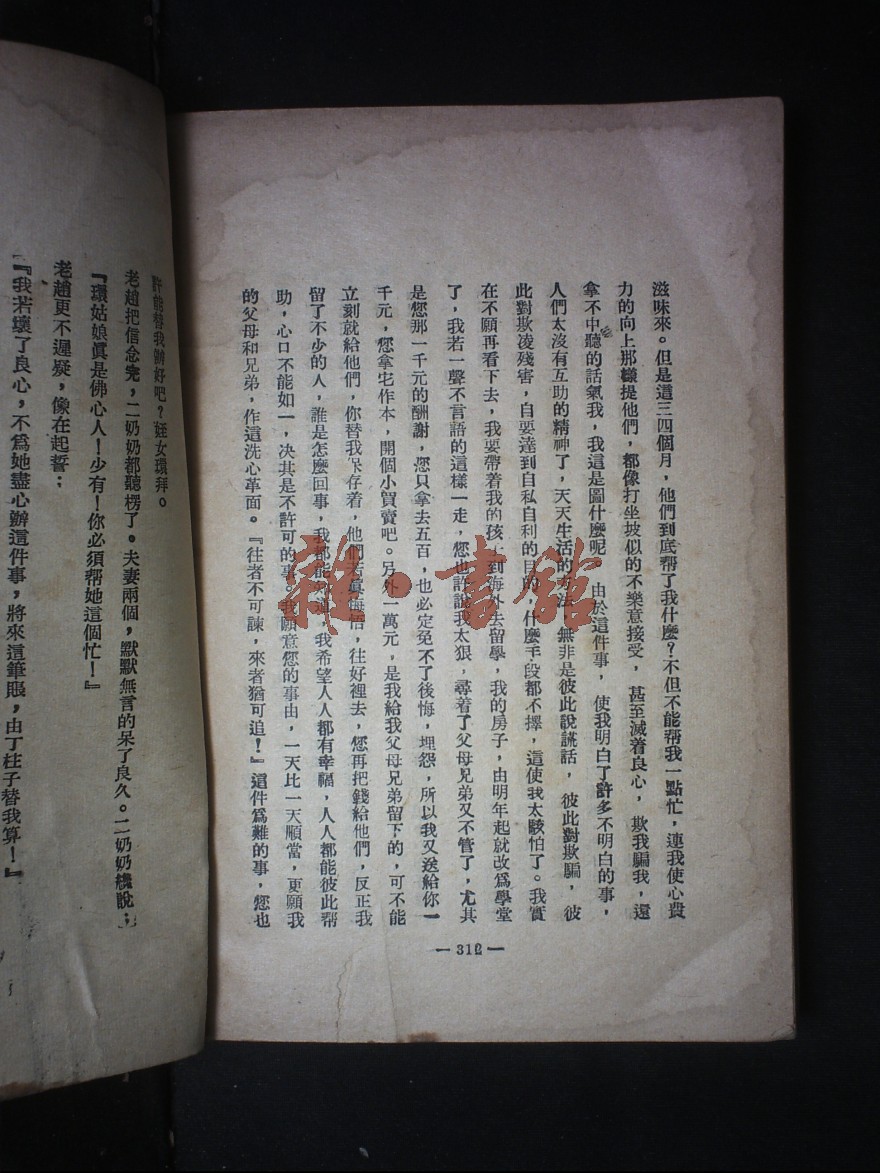 滋味來。但是這三四個月，他們到底帮了我什麼？不但不能帮我一點忙，連我使心費
力的向上那樣提他們，都像打坐坡似的不樂意接受，甚至滅着良心，欺我騙我，還
拿不中聽的話氣我，我這是圖什麼呢　由於這件事，使我明白了許多不明白的事，
人們太沒有互助的精神了，天天生活的方法，無非是彼此說謊話，彼此對欺騙，彼
此對欺凌殘害，自要達到自私自利的目的，什麼手段都不擇，這使我太駭怕了。我實
在不願再看下去，我要帶着我的孩　到海外去留學，我的房子，由明年起就改爲學堂
了，我若一聲不言語的這樣一走，您也許說我太狠，尋着了父母兄弟又不管了，尤其
是您那一千元的酬謝，您只拿去五百，也必定免不了後悔，埋怨，所以我又送給你一
千元，您拿它作本，開個小買賣吧。另外一萬元，是我給我父母兄弟留下的，可不能
立刻就給他們，你替我保存着，他們若眞悔悟，往好裡去，您再把錢給他們，反正我
留了不少的人，誰是怎麼回事，我都能知道，我希望人人都有幸福，人人都能彼此帮
助，心口不能如一，決其是不許可的事。我願意您的事由，一天比一天順當，更願我
的父母和兄弟，作這洗心革面。『往者不可諫，來者猶可追！』這件爲難的事，您也
—312—
許能替我辦好吧？姪女環拜。
老趙把信念完，二奶奶都聽楞了。夫妻兩個，默默無言的呆了良久。二奶奶纔說：
『環姑娘眞是佛心人！少有！你必須帮她這個忙！』
老趙更不遲疑，像在起誓：
『我若壞了良心，不爲她盡心辦這件事，將來這筆賬，由丁柱子替我算！』
雜·書館